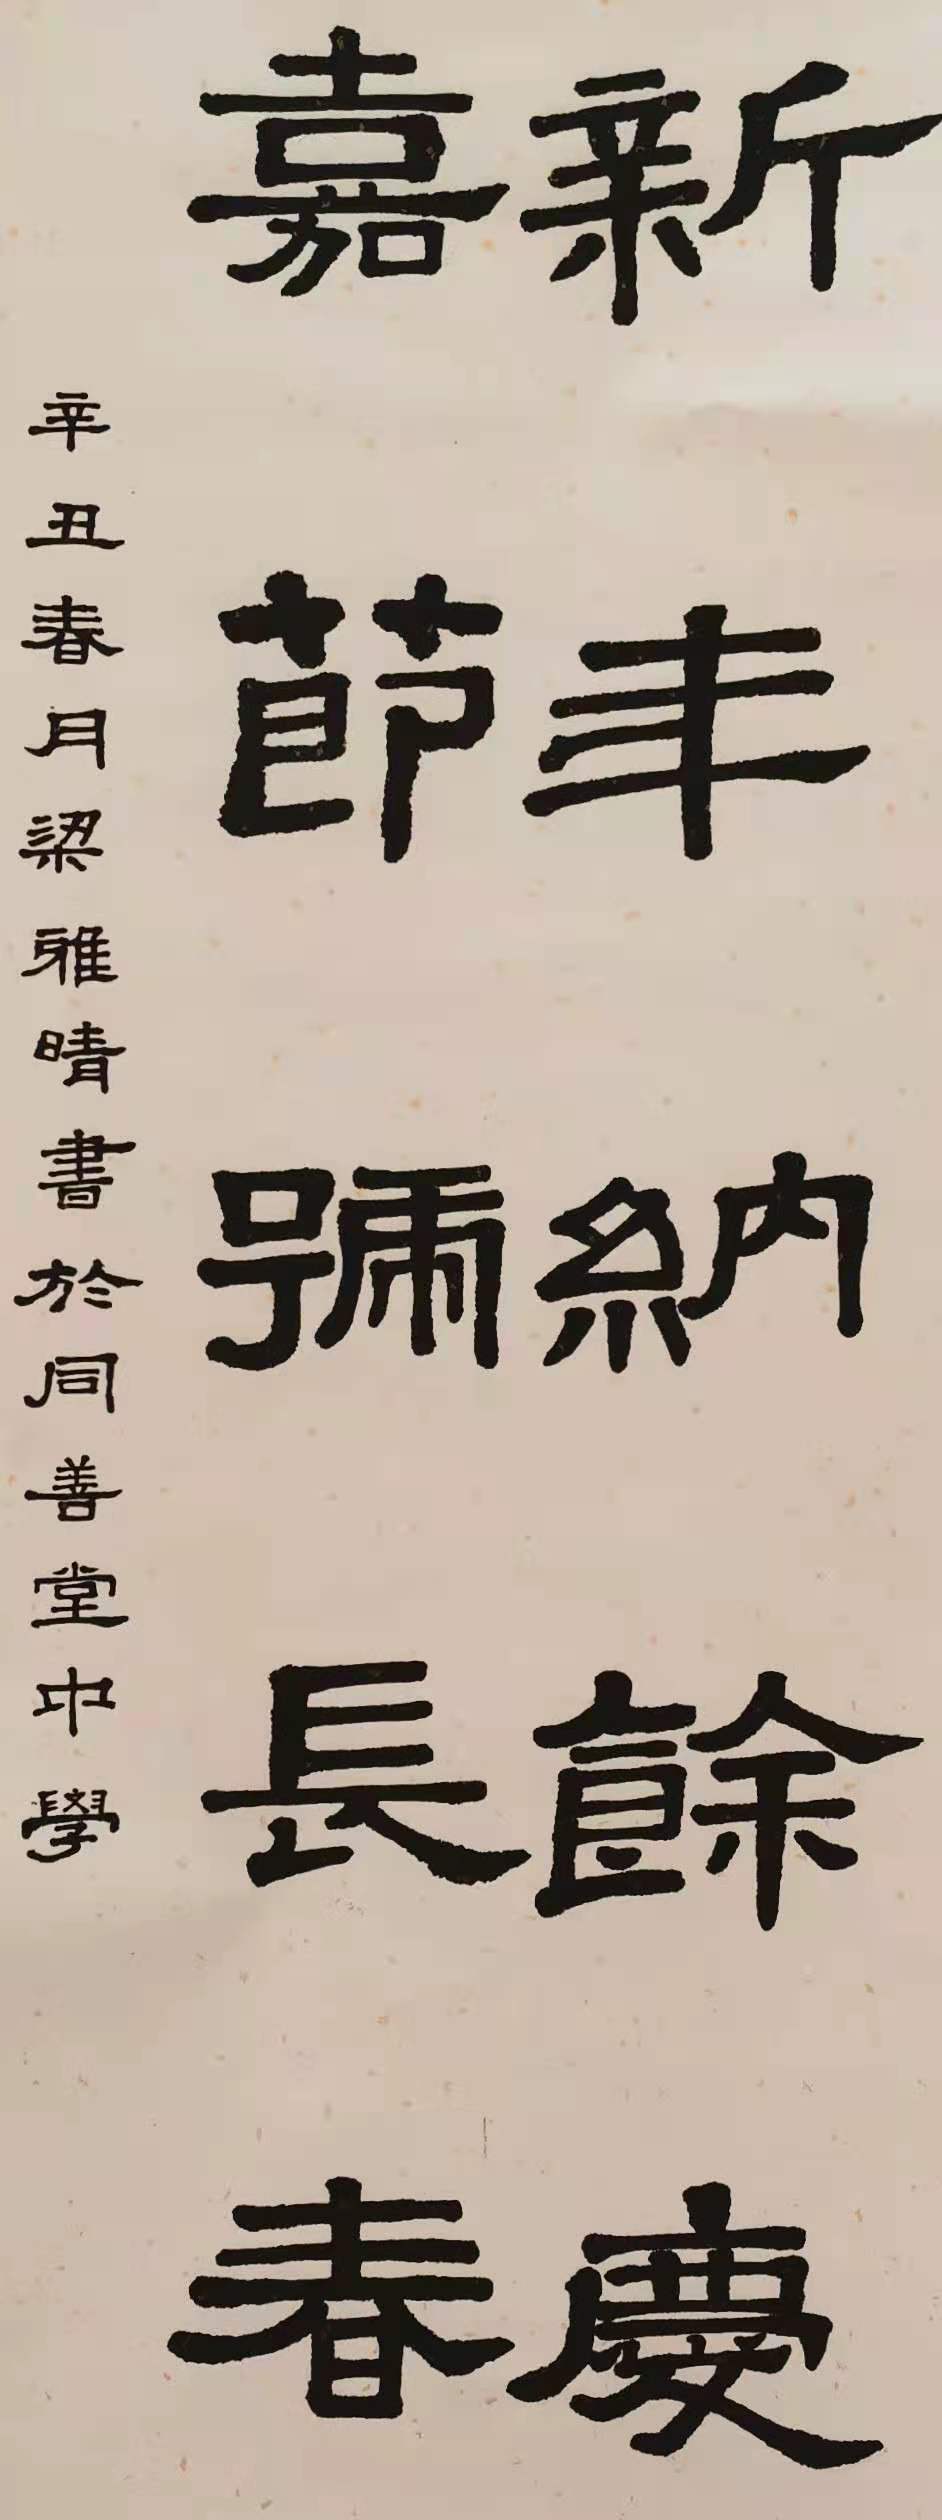 新年納餘慶
嘉節號長春
辛丑春月梁雅晴書於同善堂中學